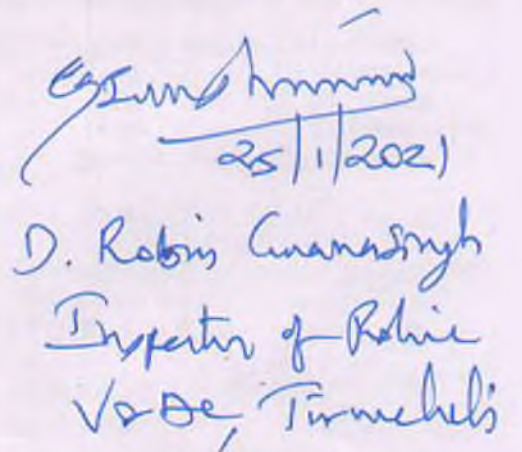 25/1/2021
D. Robin Gnanasingh
Inspector of Police
V&AC, Tirunelveli